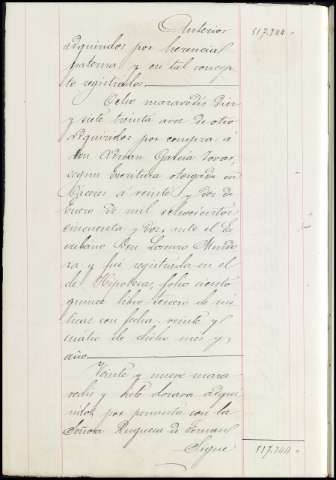 Anteriores 517.944
adquiridos por herencia
paterna y en tal concep-
to registrados.
Ocho maravedis diez
y siete treinta avos de otro
adquiridos por compra á
don Adrian Garcia Tovar,
segun Escritura otorgada en
Cáceres á veinte y dos de
Enero de mil ochocientos
cincuenta y dos, ante el Es-
cribano Don Lázaro Mendo-
za y fue registrada en el
de Hipotecas, folio ciento
quince libro tercero de
fincas con fecha, veinte y
cuatro de dicho mes y
año
Veinte y nueve mara-
vedis y siete dozavos adqui-
ridos por permuta con la
Señora Duquesa de Fernan
Sigue 517.944